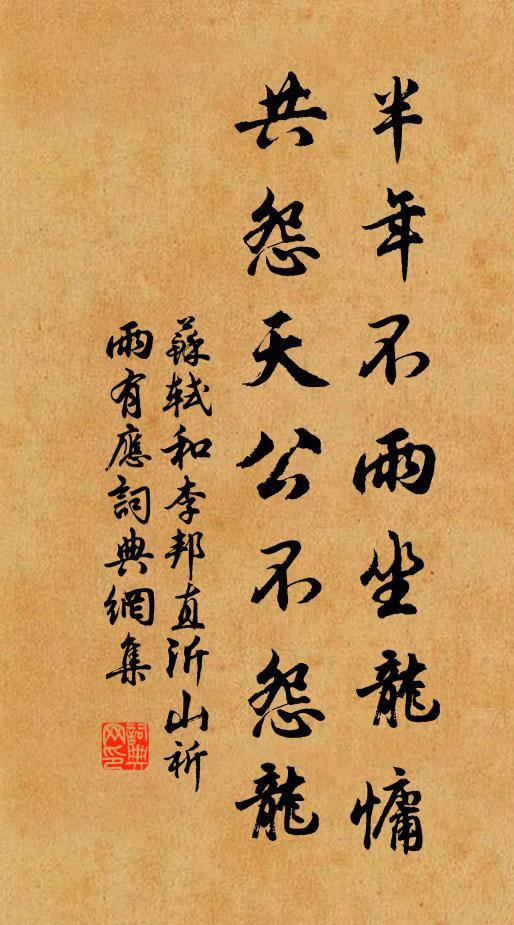 半年不雨坐龍慵
共怨天公不怨龍
蘇軾和李邦直沂山祈
雨有應詞典網集
詞典網印